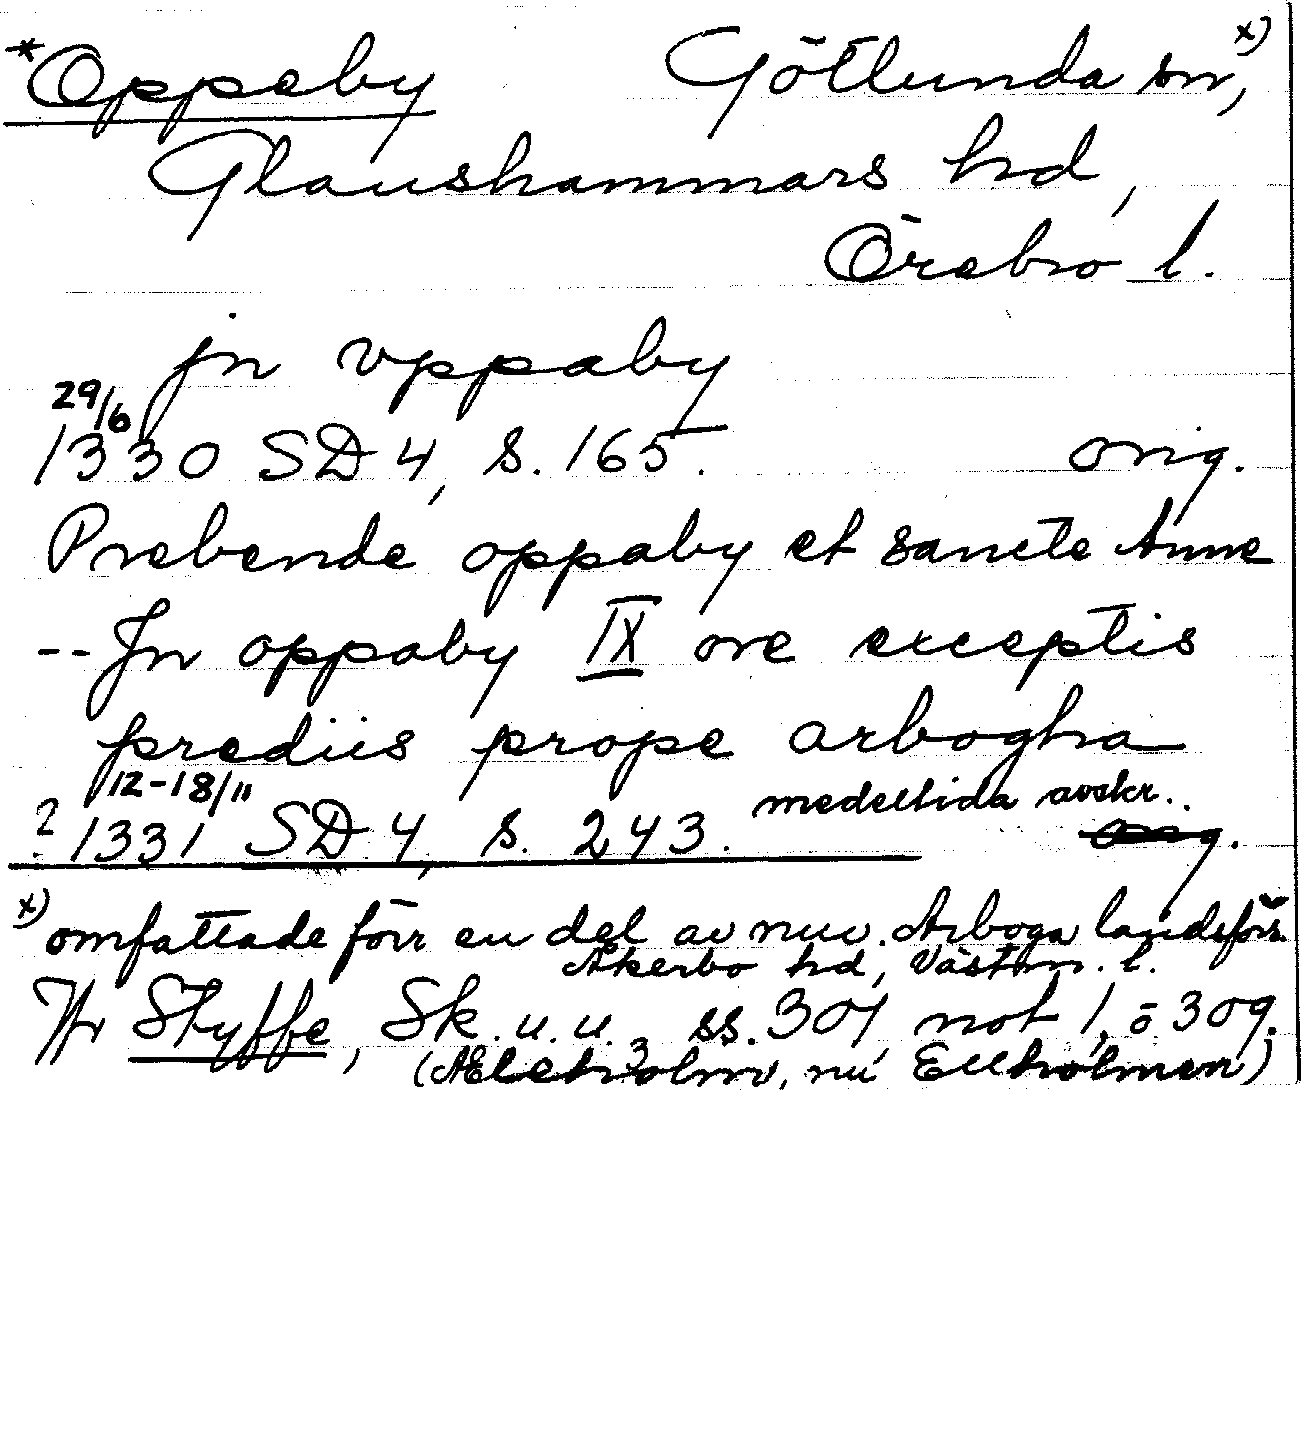 *Oppeby Götlunda sn, x)
Glanshammars hd,
Örebro l.
jn vppaby
29/6
1330 SD 4, s. 165. orig.
Prebende oppaby et sancte Anne
-- Jn oppaby IX ore exceptis
prediis prope arbogha
12-18/11 medeltida avskr..
? 1331 SD 4, s. 243.
x) omfattade förr en del av nuv. Arboga landsförs.
Åkerbo hd, Västm. l.
Jfr Styffe, Sk. u. u.3, ss. 307 not 1, o 309.
(Æleholm, nu Ellholmen)